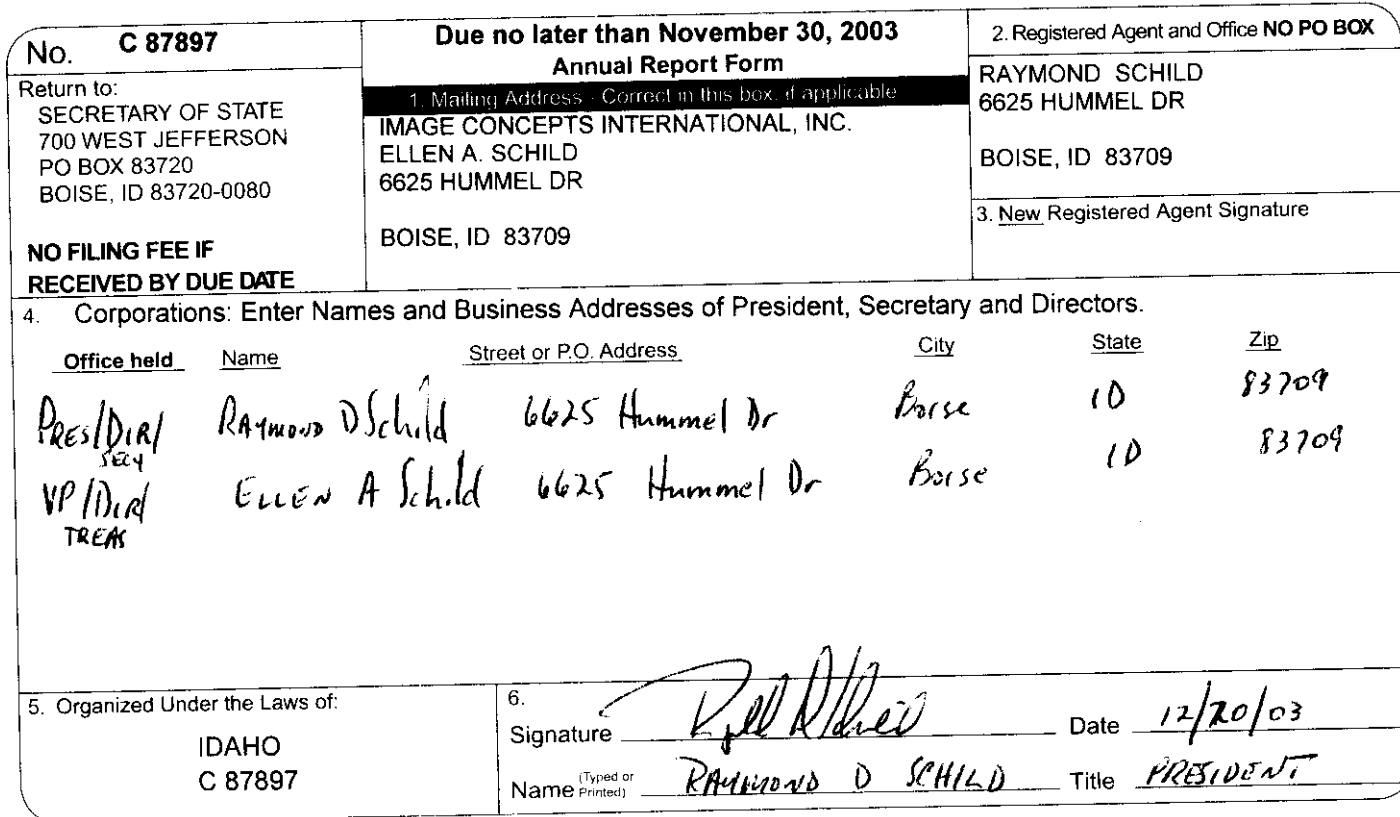 No. C 87897
Return to:
SECRETARY OF STATE
700 WEST JEFFERSON
PO BOX 83720
BOISE, ID 83720-0080
NO FILING FEE IF
RECEIVED BY DUE DATE
Due no later than November 30, 2003
Annual Report Form
1. Mailing Address - Correct in this box, if applicable
IMAGE CONCEPTS INTERNATIONAL, INC.
ELLEN A. SCHILD
6625 HUMMEL DR
BOISE, ID 83709
2. Registered Agent and Office NO PO BOX
RAYMOND SCHILD
6625 HUMMEL DR
BOISE, ID 83709
3. New Registered Agent Signature
4. Corporations: Enter Names and Business Addresses of President, Secretary and Directors.
Office held Name Street or P.O. Address City State Zip
PRES/DIR/ RAYMOND D Schild 6625 Hummel Dr Boise ID 83709
SECY
VP/DIR/ ELLEN A Schild 6625 Hummel Dr Boise ID 83709
TREAS
5. Organized Under the Laws of:
IDAHO
C 87897
6.
Signature Date 12/20/03
Name (Typed or Printed) RAYMOND D SCHILD Title PRESIDENT